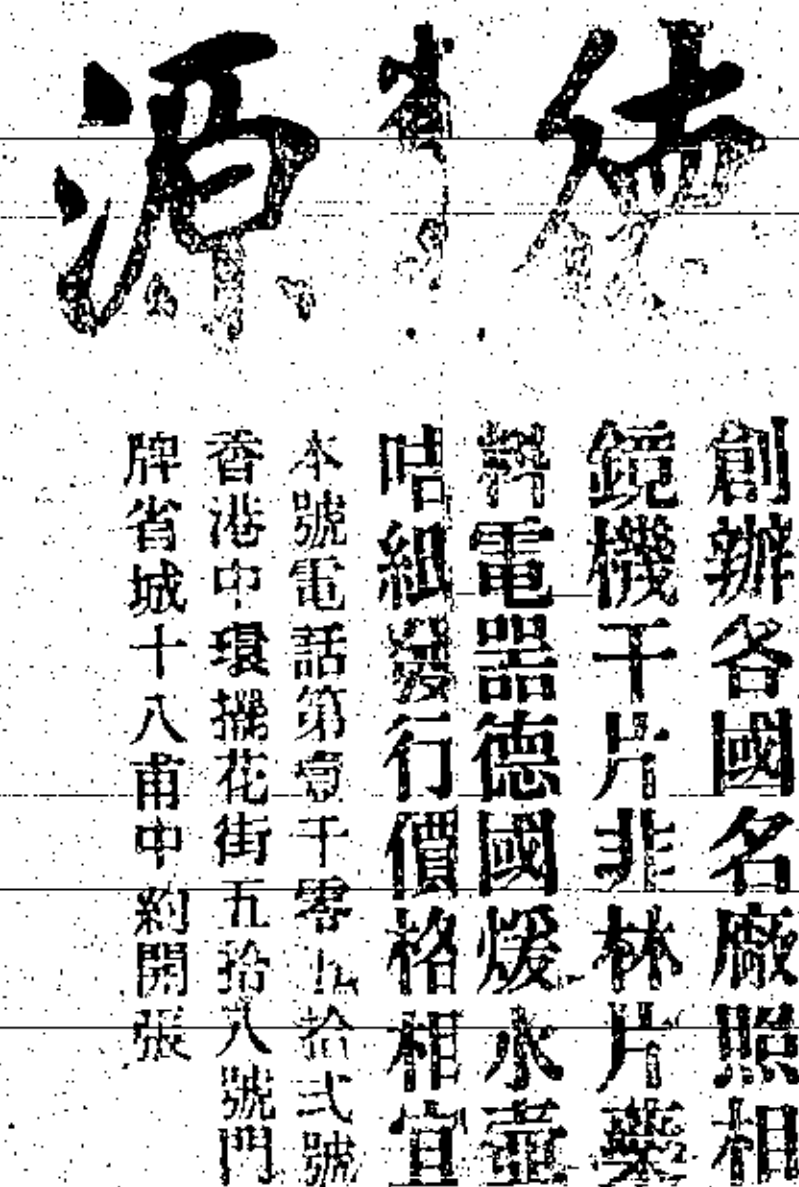 源
創辦各國名廠照相
鏡機干片非林片藥
料電器德國煖水壺
咭紙發行價格相宜
本號電話第壹千零五拾弍號
香港中環擺花街五拾八號門
牌省城十八甫中約開張